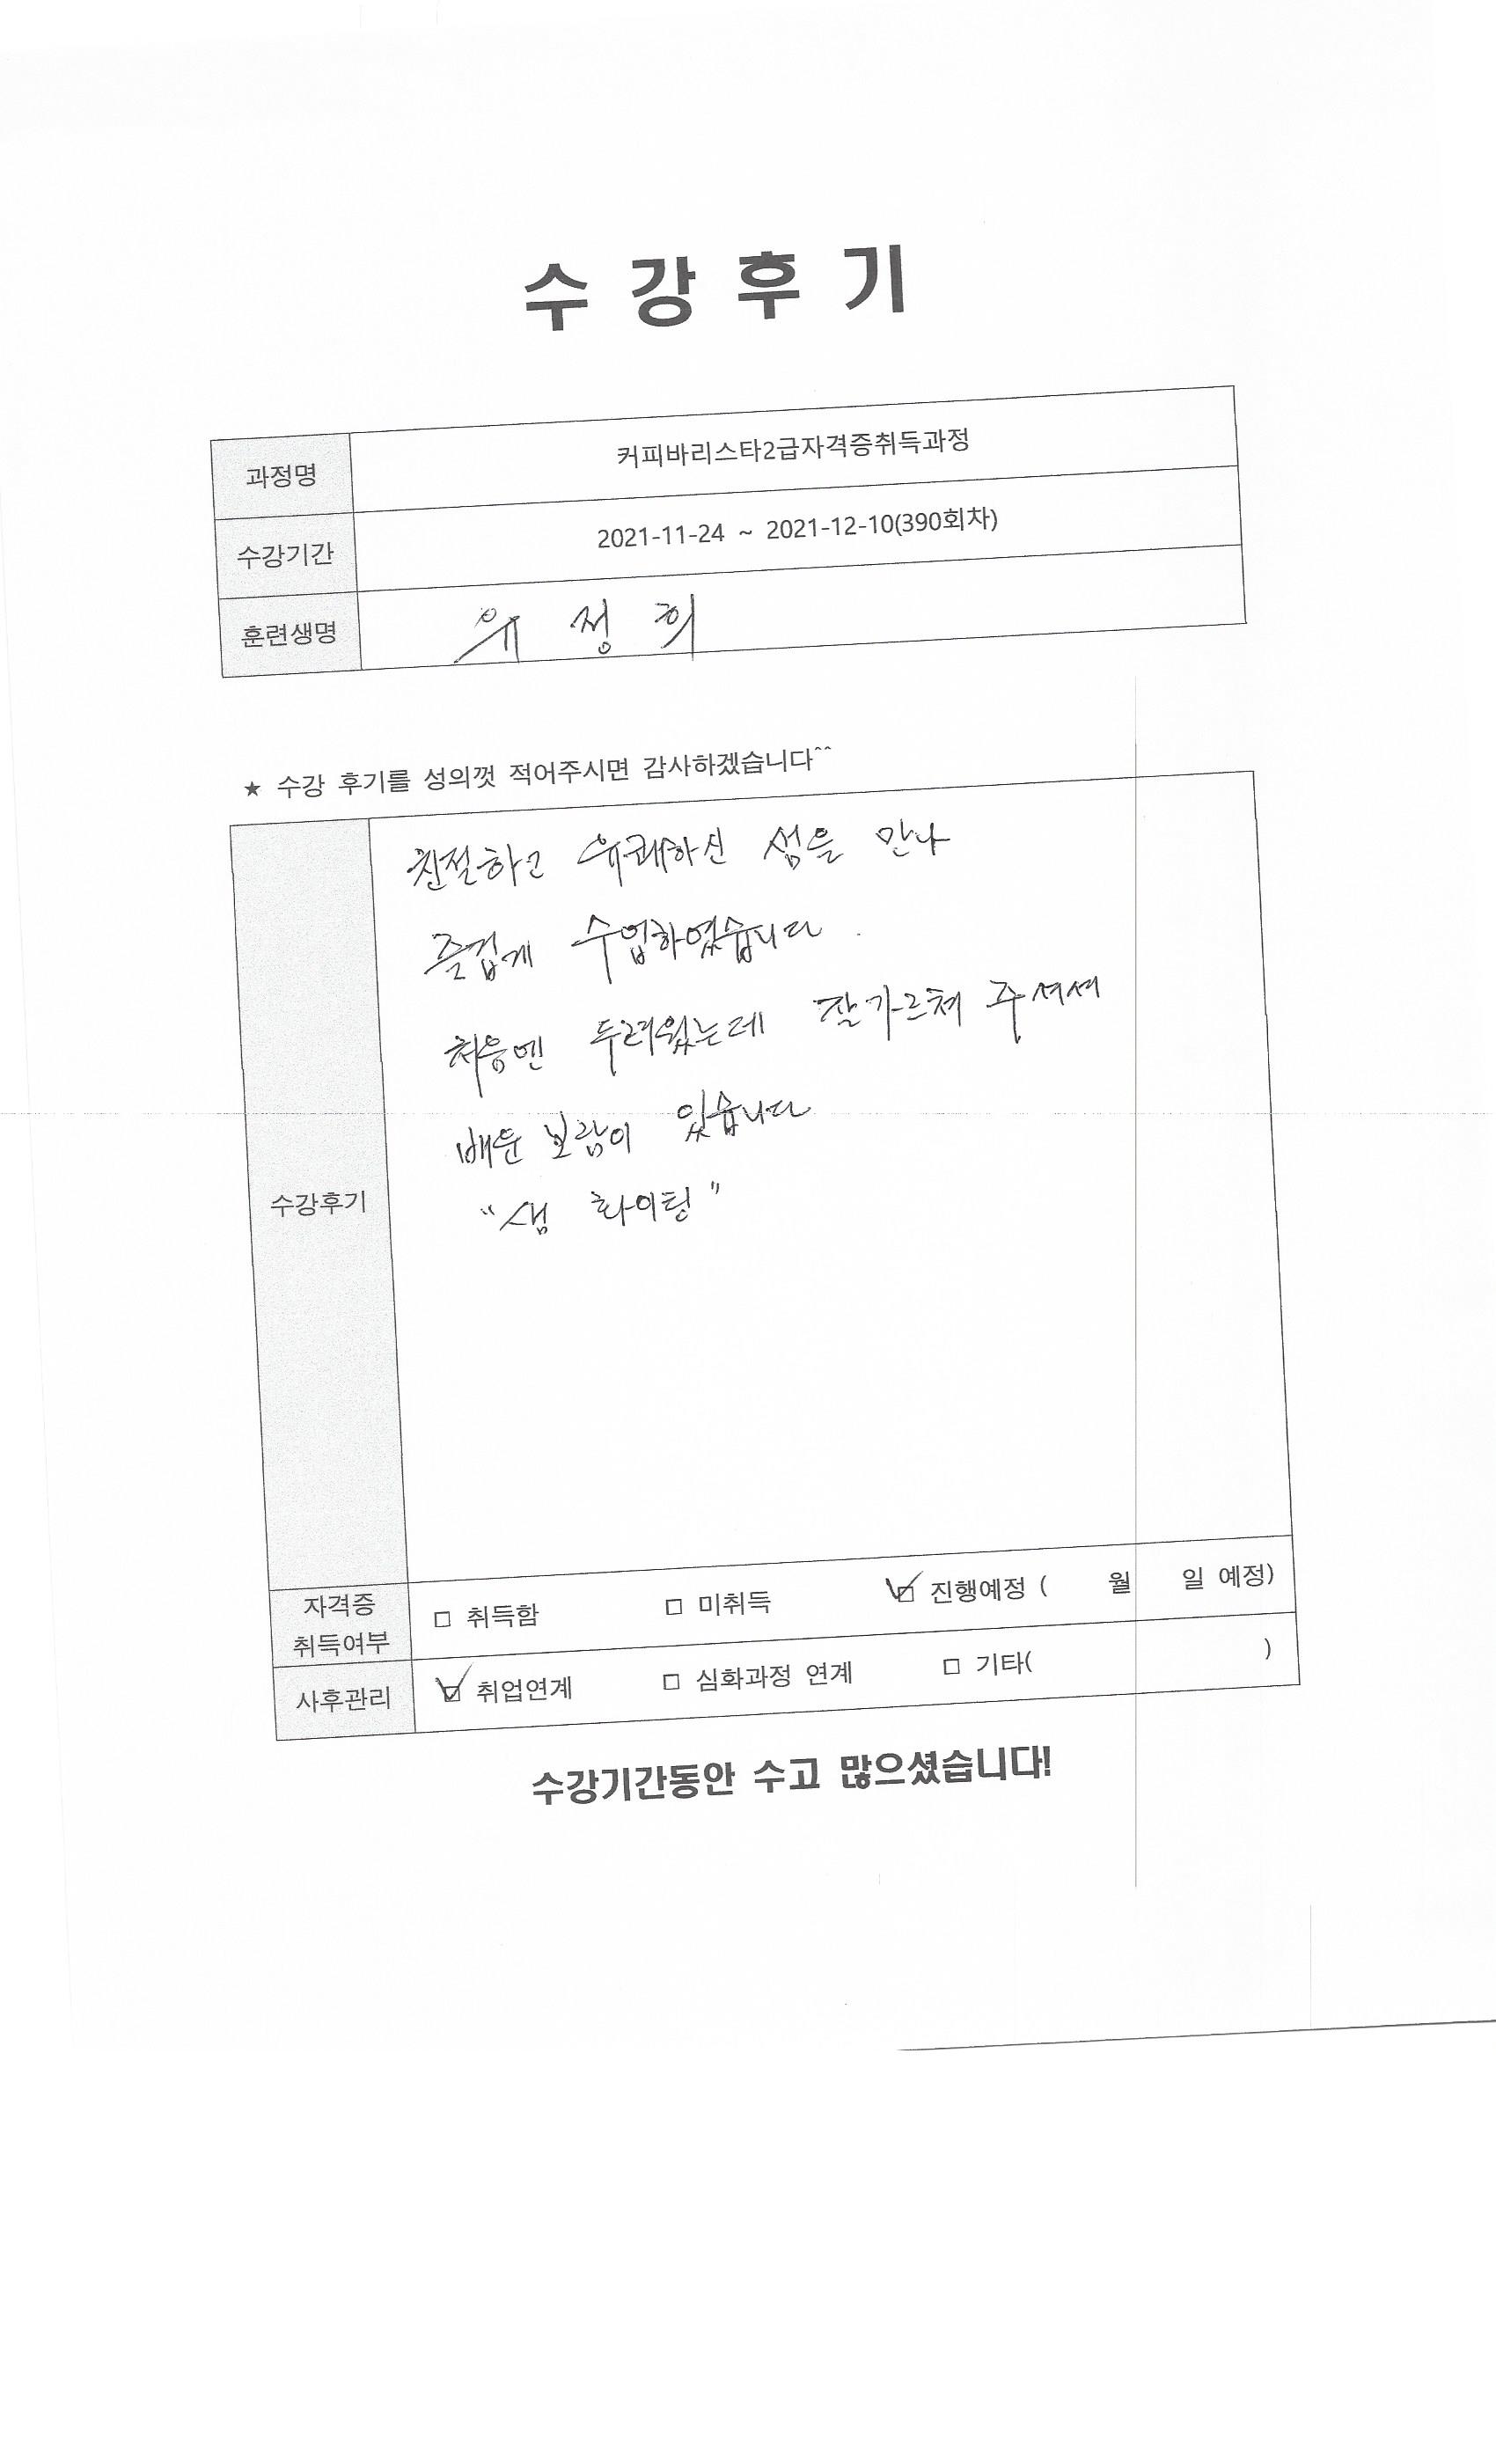 수 강 후 기
과정명 커피바리스타2급자격증취득과정
수강기간 2021-11-24 ~ 2021-12-10(390회차)
훈련생명 유 정 희
★ 수강 후기를 성의껏 적어주시면 감사하겠습니다^^
친절하고 유쾌하신 섬을 만나
즐겁게 수업하였습니다.
처음엔 두려웠는데 잘가르쳐 주셔서
배운 보람이 있습니다
수강후기
"샘 화이팅"
자격증 취득여부 □ 취득함 □ 미취득 ☑ 진행예정 ( 월 일 예정)
사후관리 ☑ 취업연계 □ 심화과정 연계 □ 기타( )
수강기간동안 수고 많으셨습니다!